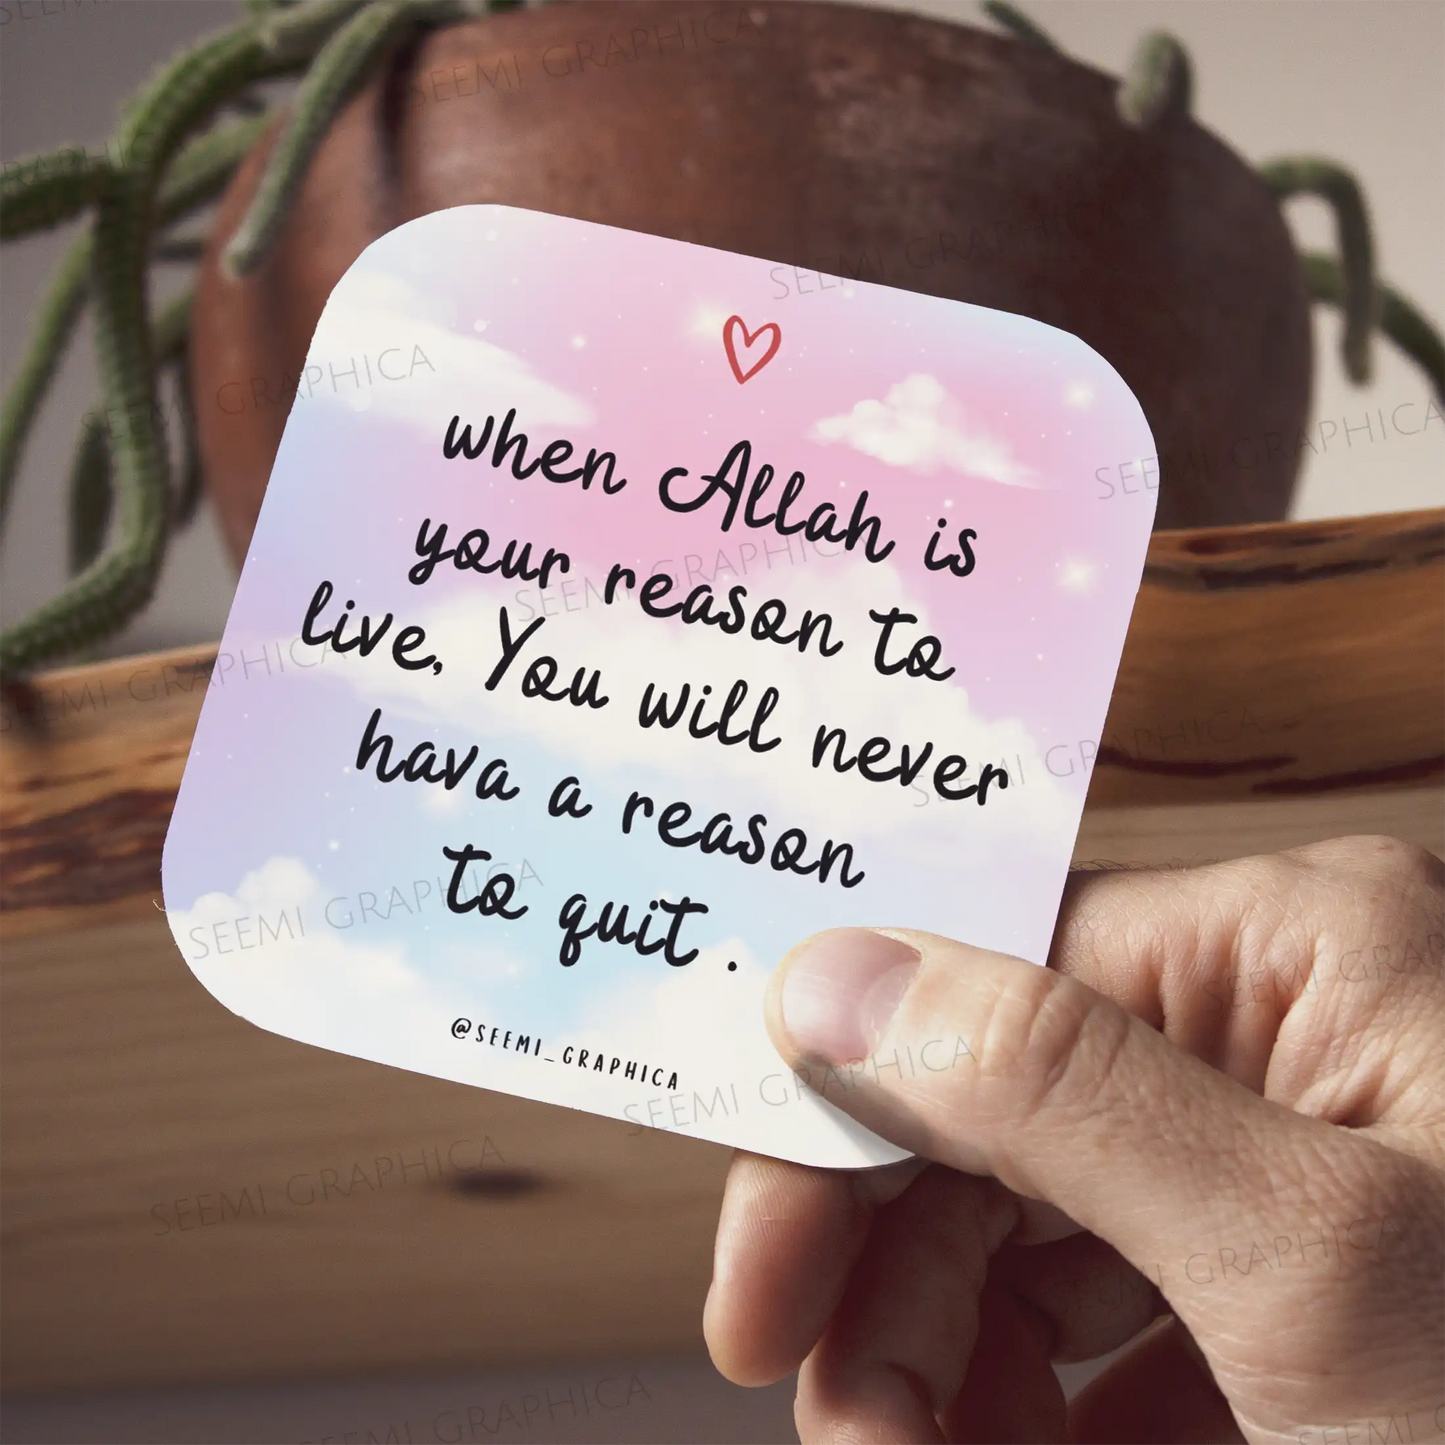 when Allah is
your reason to
live, You will never
hava a reason
to quit .
@SEEMI_GRAPHICA
SEEMI GRAPHICA